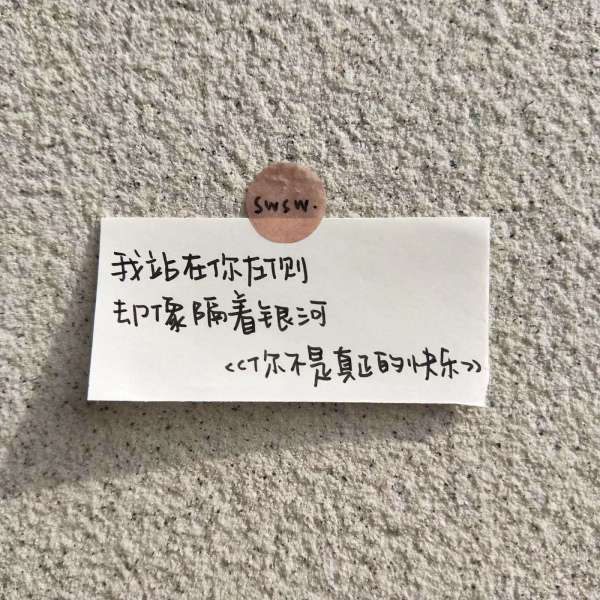 swsw.
我站在你左侧
却像隔着银河
<<你不是真正的快乐>>